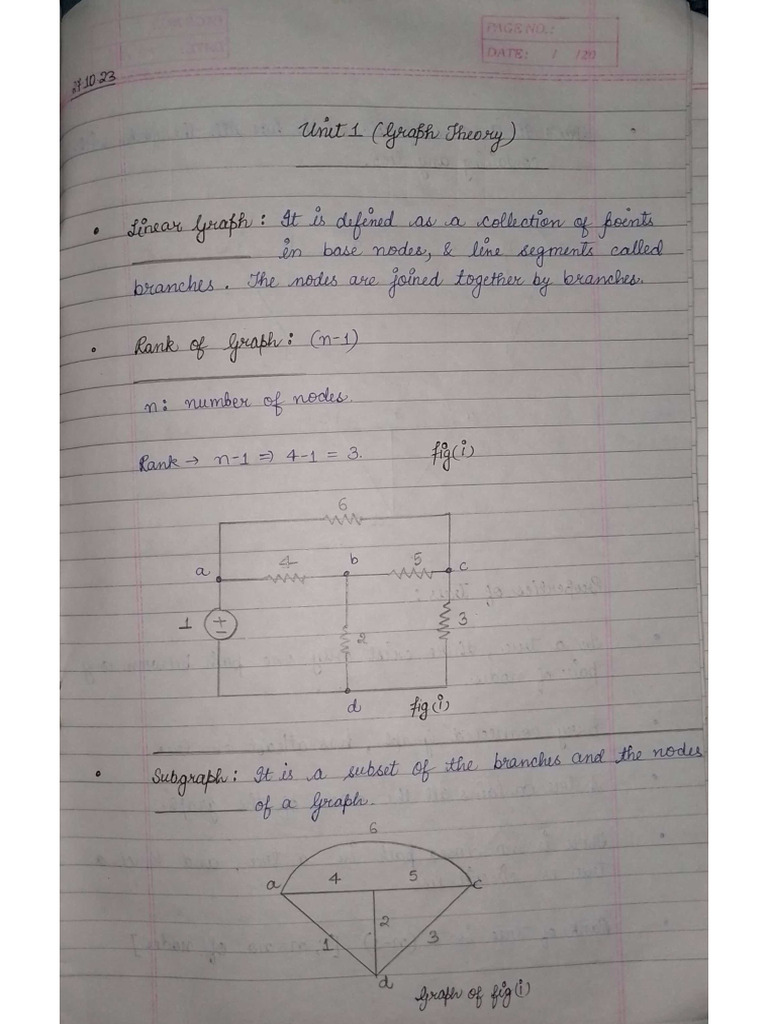 PAGE NO.:
DATE: / /20
27.10.23
Unit 1 (Graph Theory)
• Linear Graph: It is defined as a collection of points
in base nodes, & line segments called
branches. The nodes are joined together by branches.
• Rank of Graph: (n-1)
n: number of nodes.
Rank → n-1 ⇒ 4-1 = 3. fig(i)
6
a 4 b 5 c
1 + - 2 3
d fig(i)
• Subgraph: It is a subset of the branches and the nodes
of a Graph.
6
a 4 5 c
1 2 3
d
Graph of fig(i)